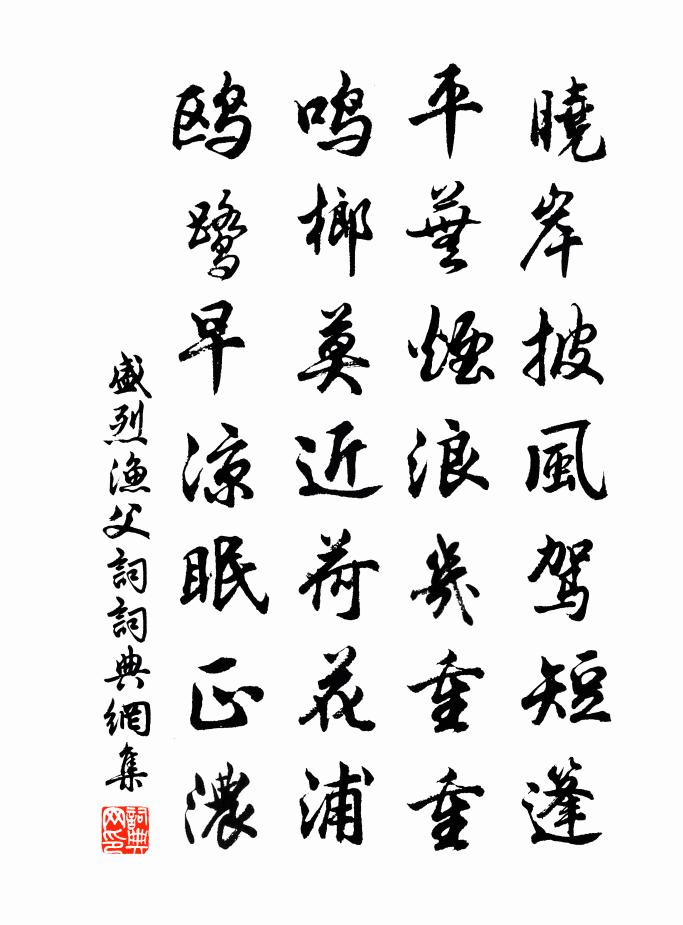 曉岸披風駕短篷
平蕪煙浪幾重重
鳴榔莫近荷花浦
鷗鷺早涼眠正濃
盛烈漁父詞詞典網集
詞典网印